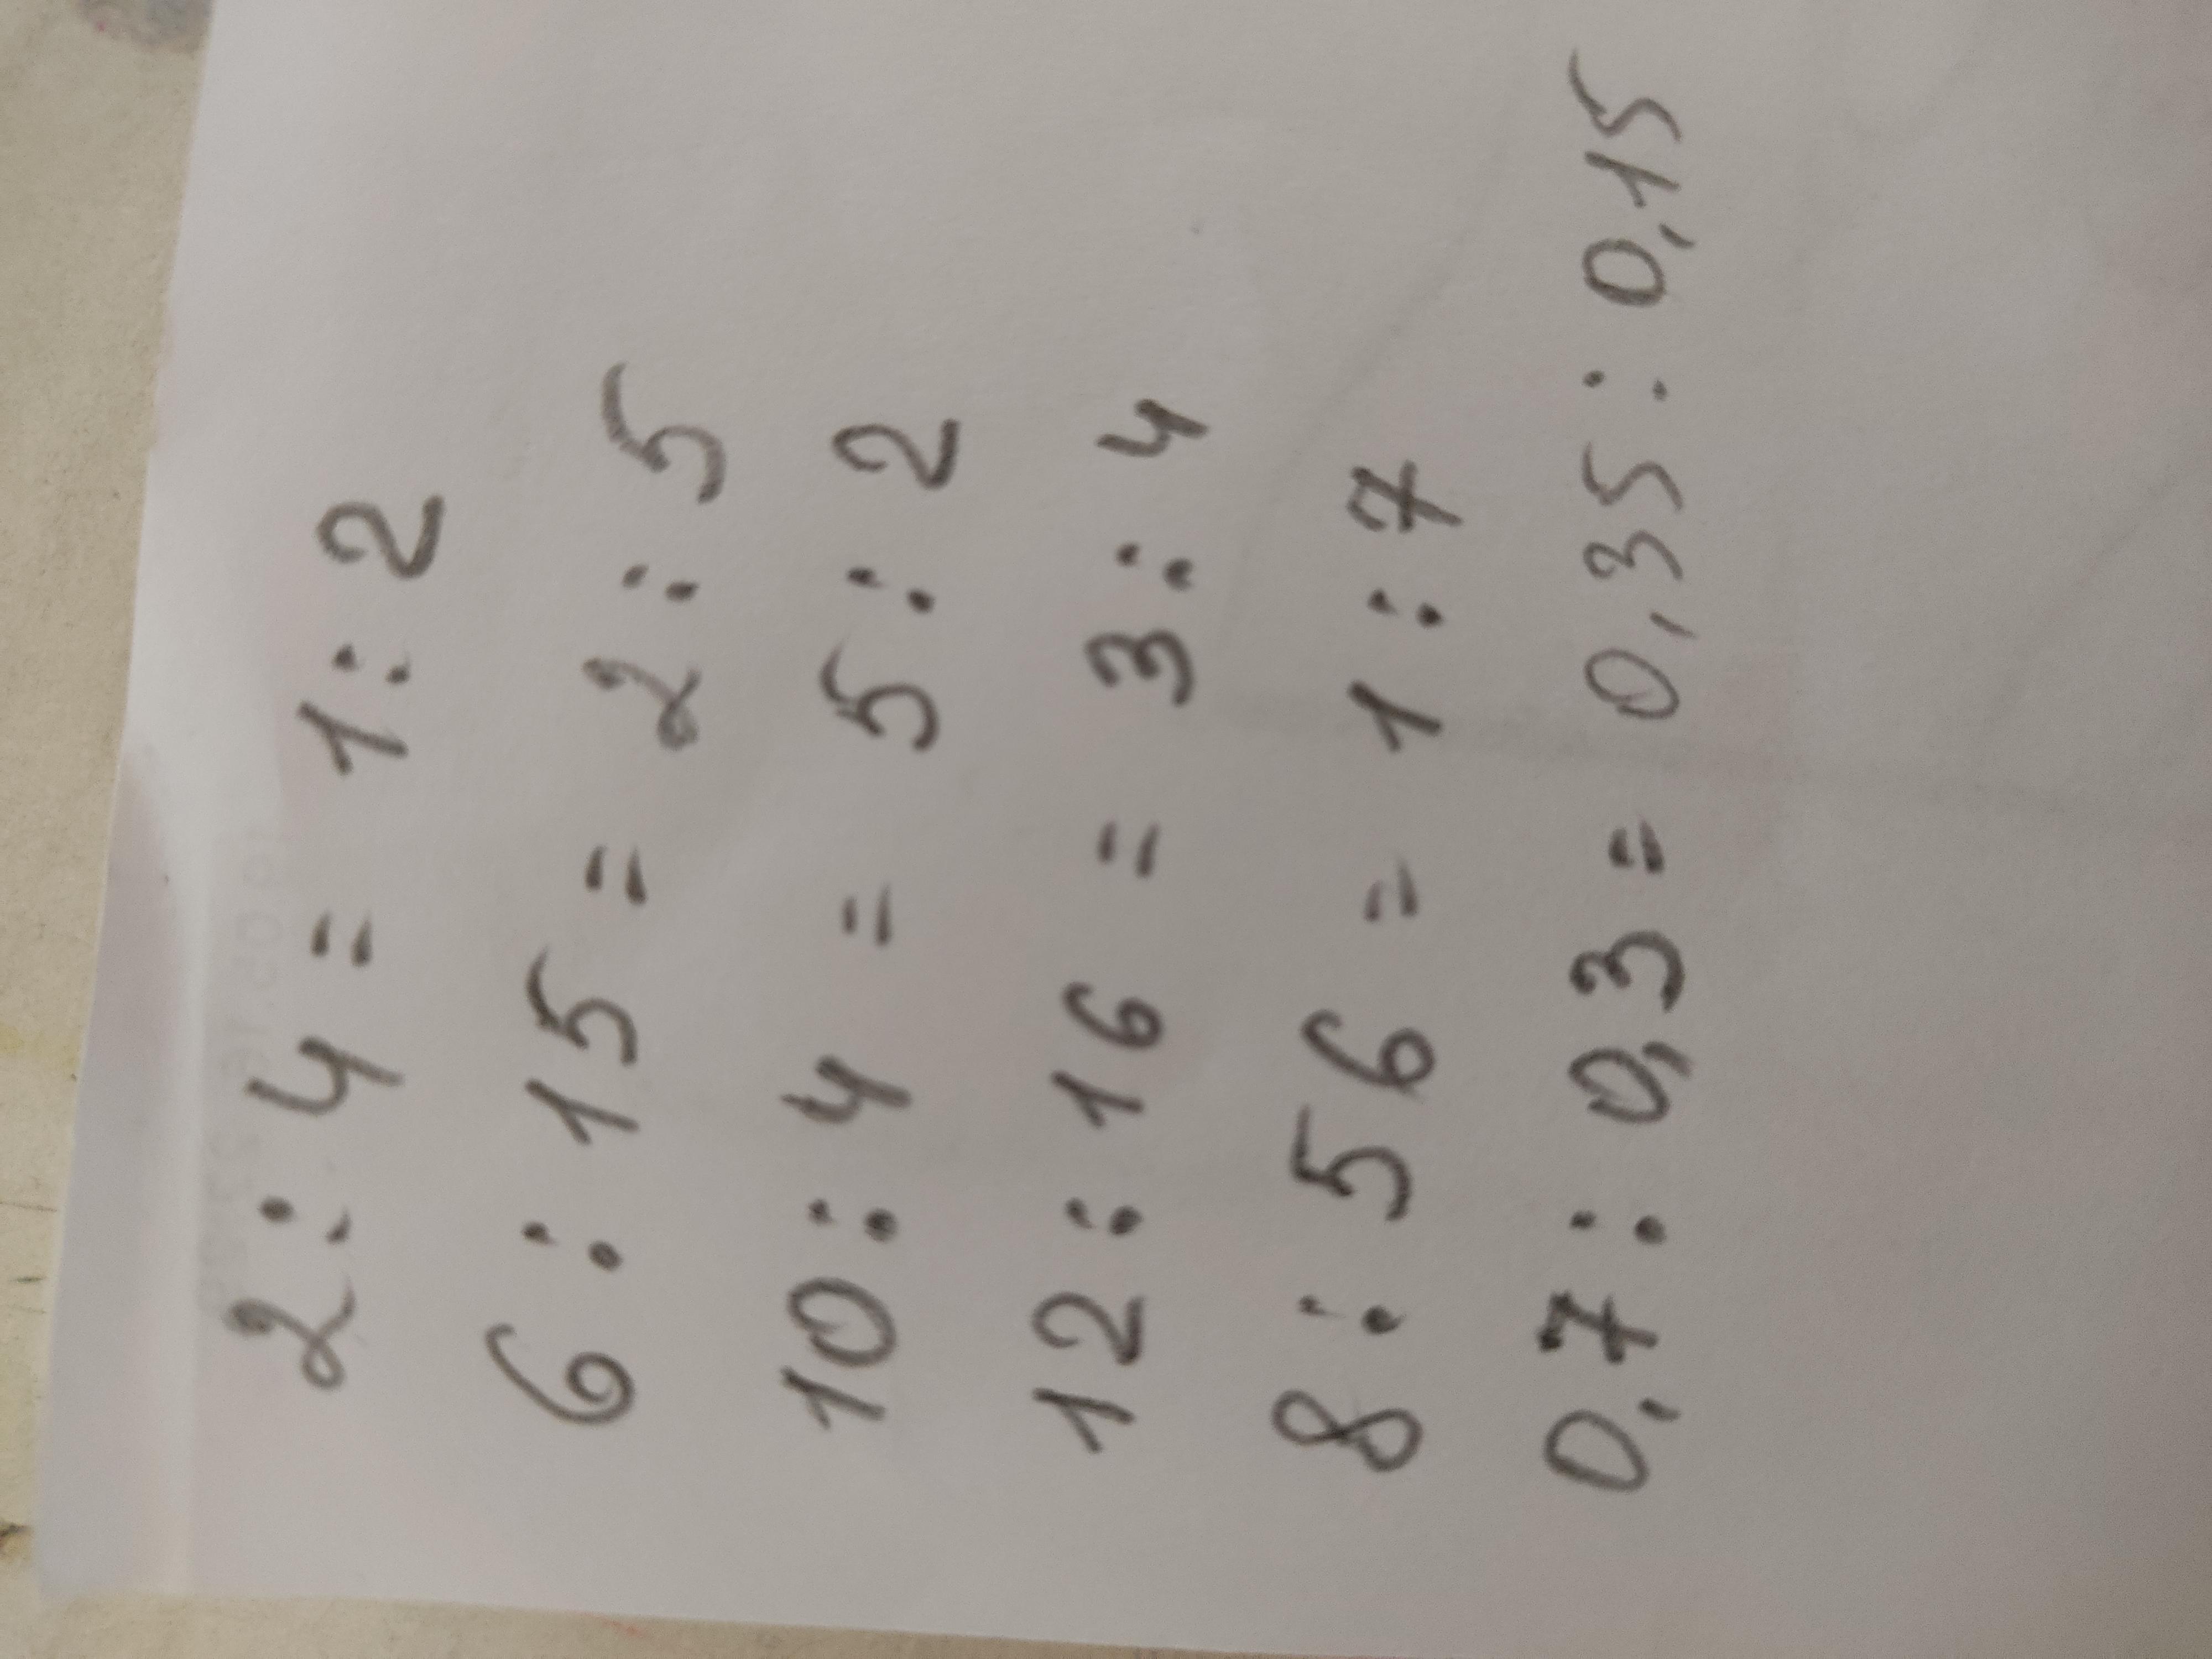 2 : 4 = 1 : 2
6 : 15 = 2 : 5
10 : 4 = 5 : 2
12 : 16 = 3 : 4
8 : 56 = 1 : 7
0,7 : 0,3 = 0,35 : 0,15